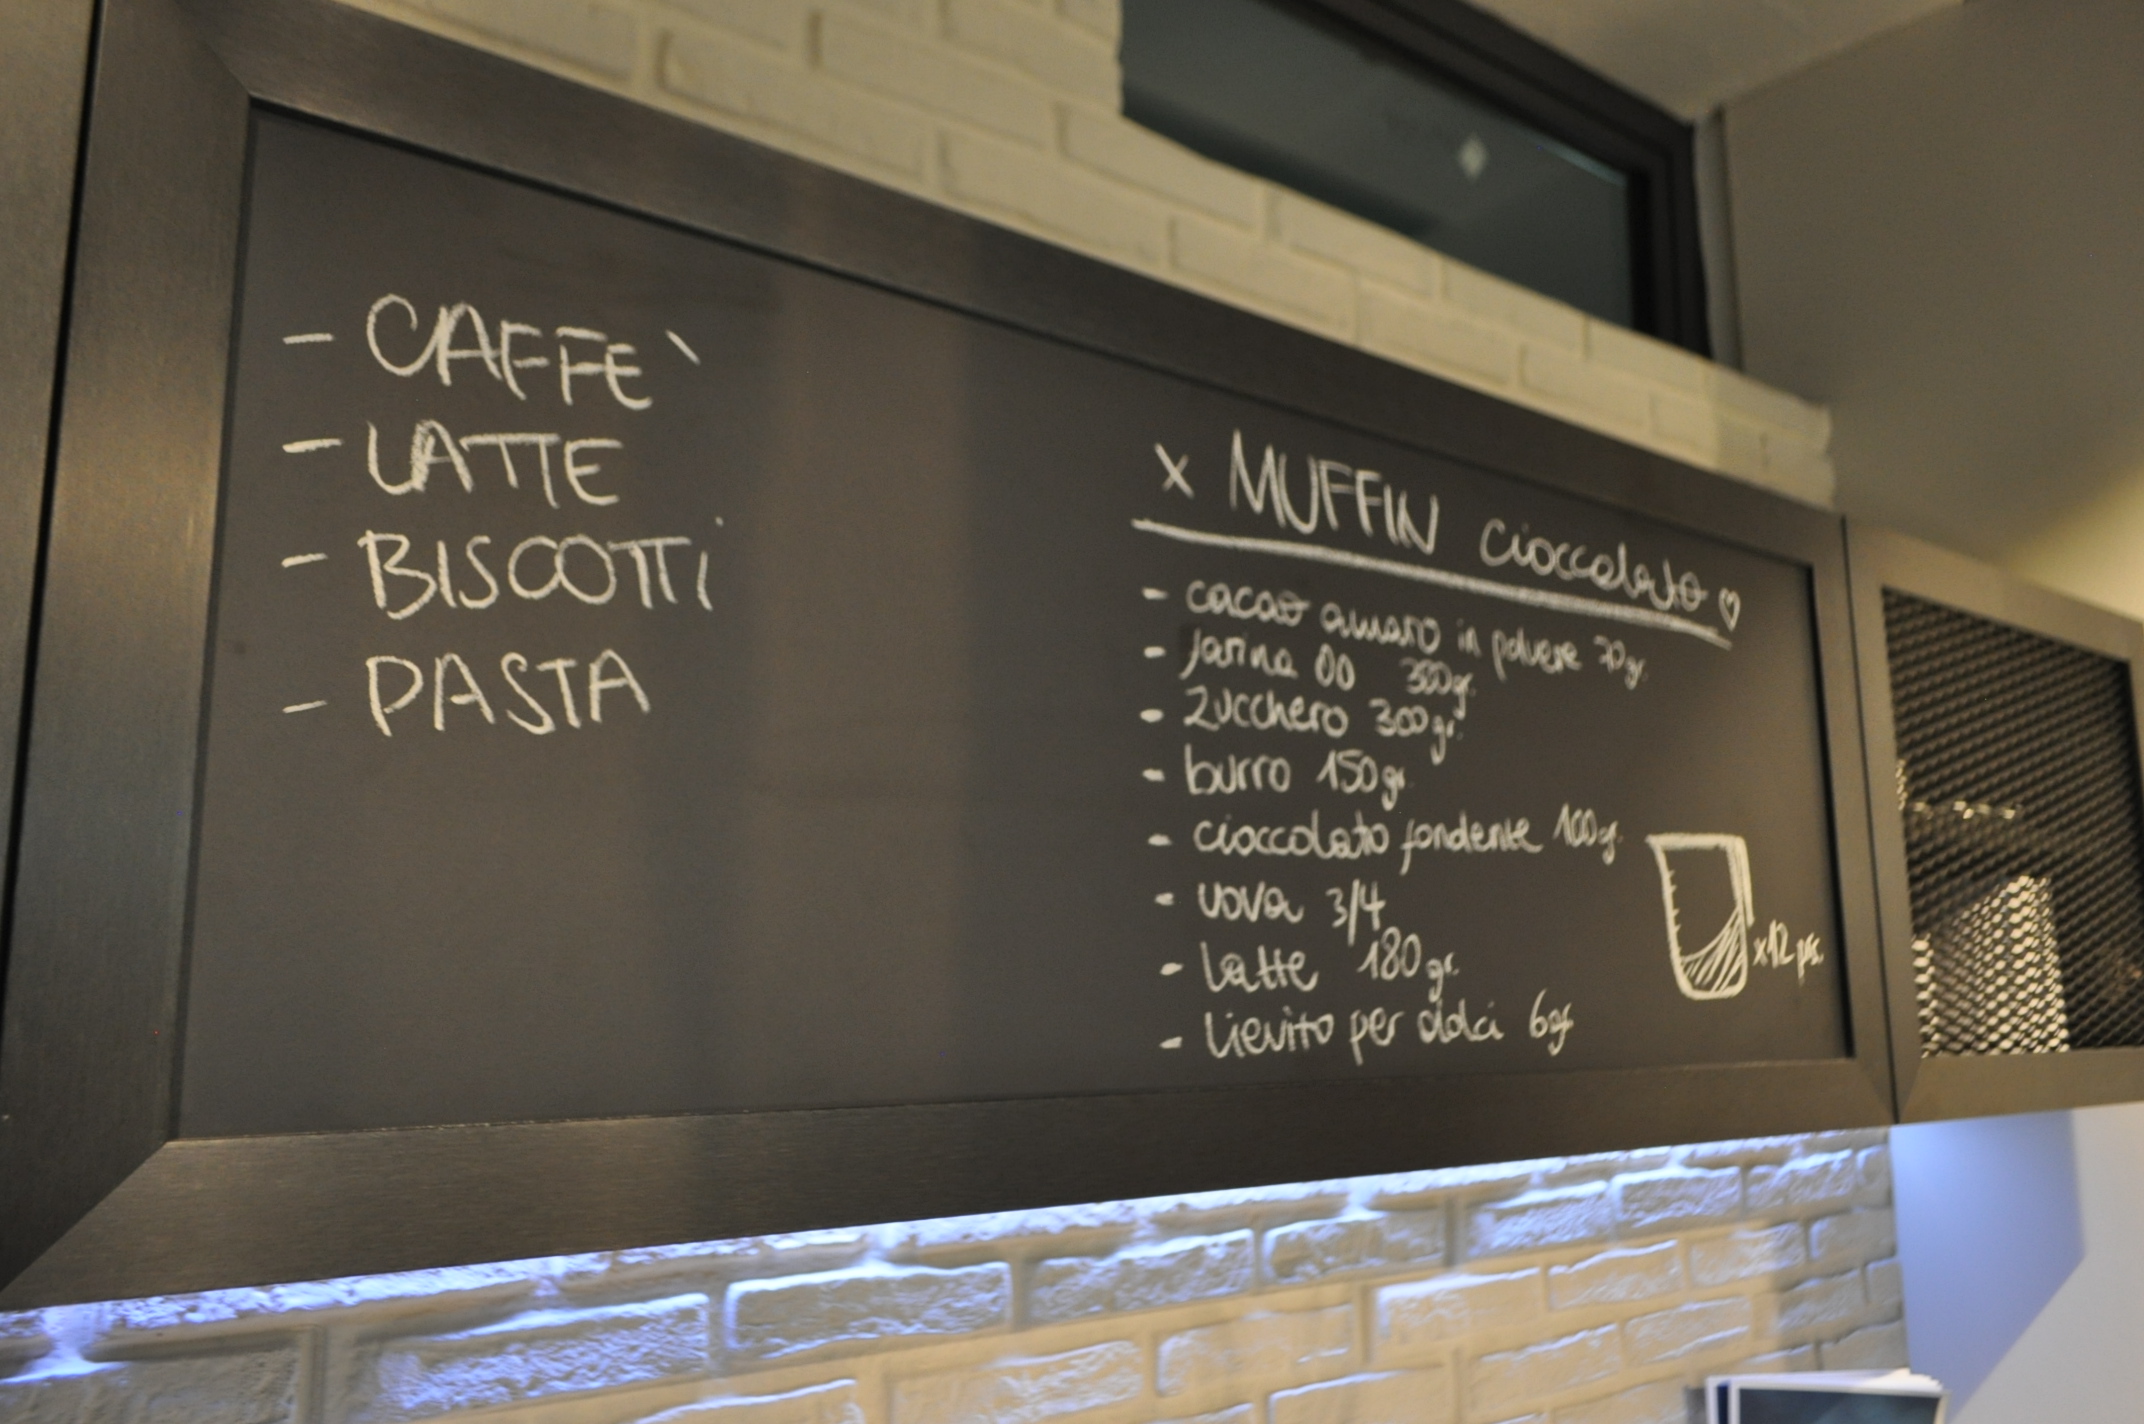 - CAFFE`
- LATTE
- BISCOTTi
- PASTA
x MUFFIN cioccolato ♡
- cacao amaro in polvere 70gr.
- farina 00 300gr.
- zucchero 300gr.
- burro 150gr.
- cioccolato fondente 100gr.
- uova 3/4
- latte 180gr.
- lievito per dolci 6gr
x12 ps.